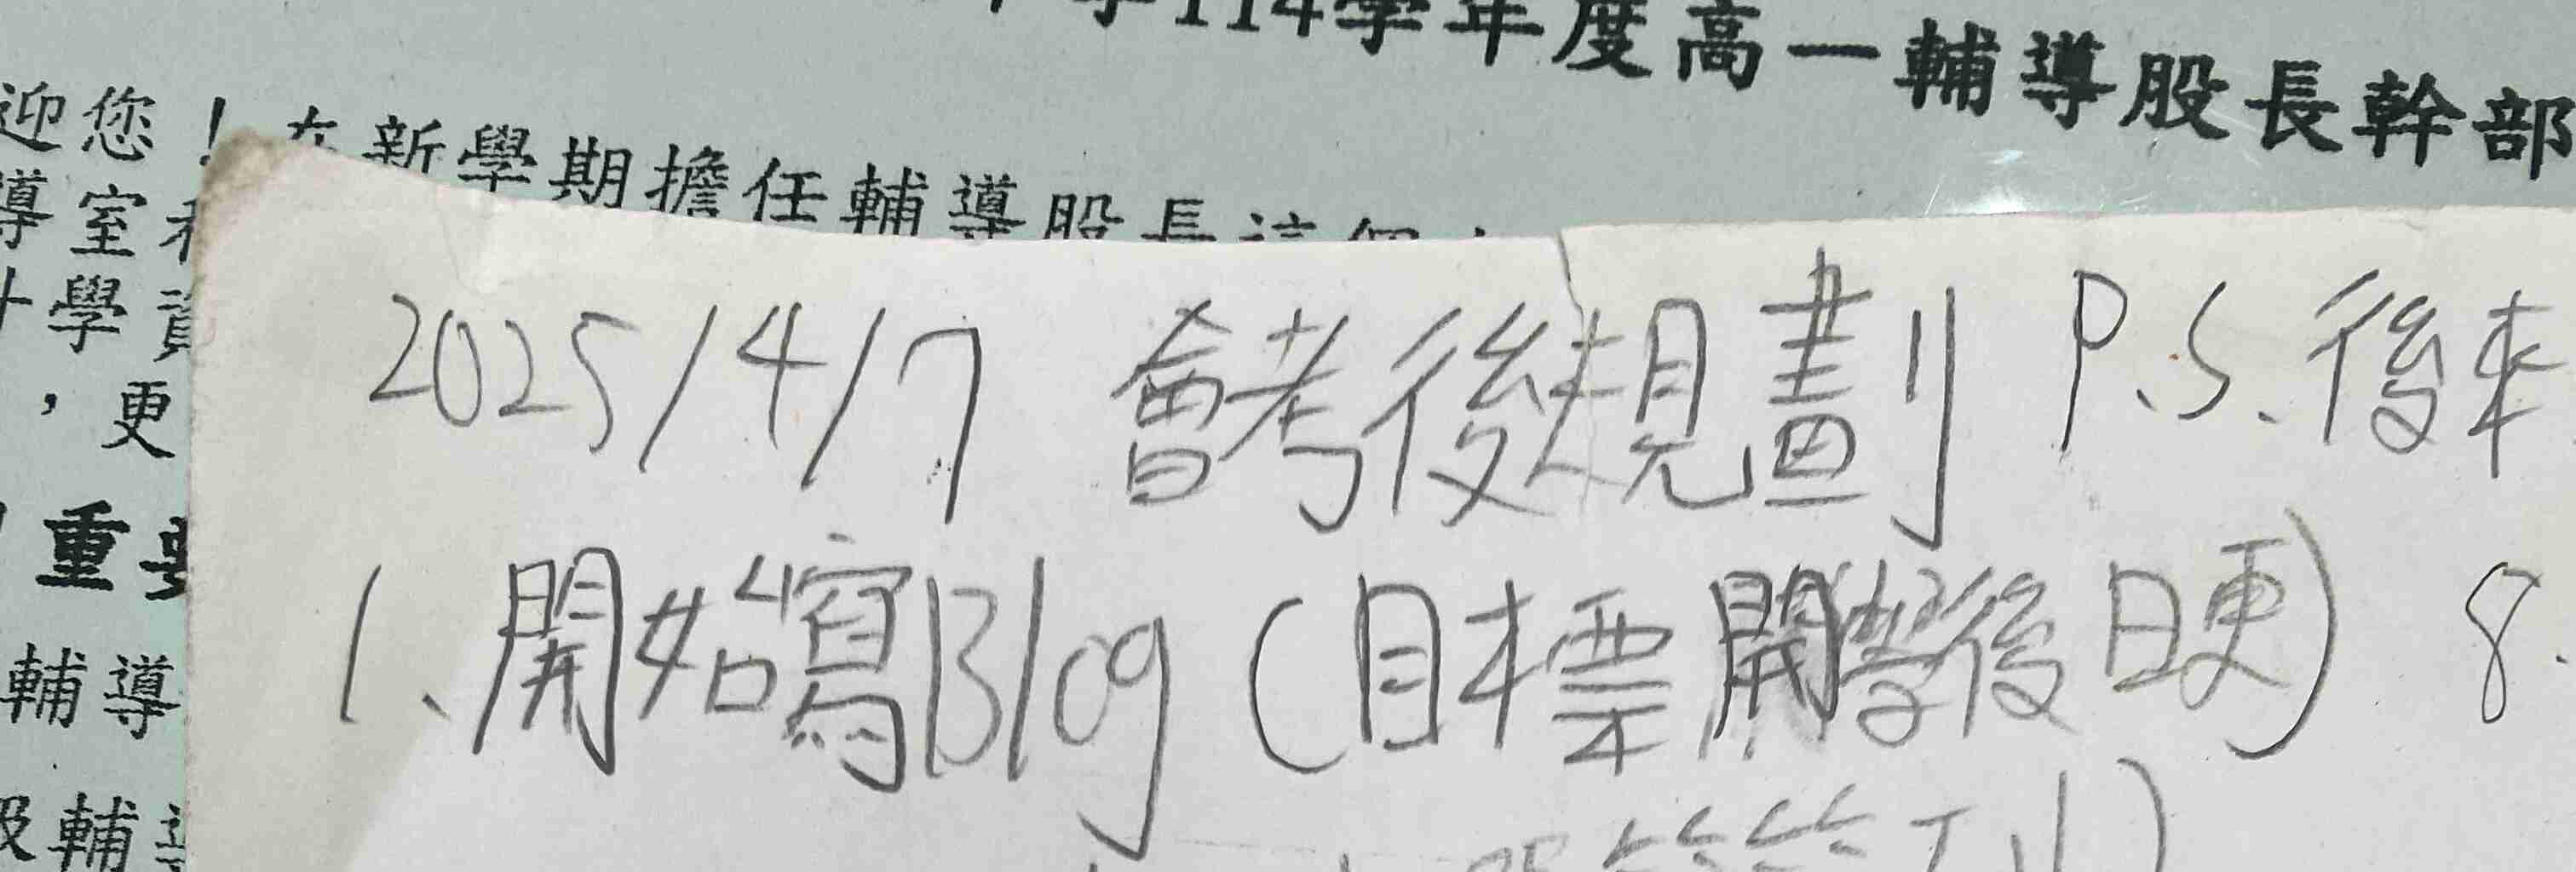 學114學年度高一輔導股長幹部
迎您！在新學期擔任輔導股長這個
導室
學資
，更
重要
輔導
輔導
2025/4/7 會考後規劃 P.S.後來
1、開始寫Blog(目標開學後日更) 8.